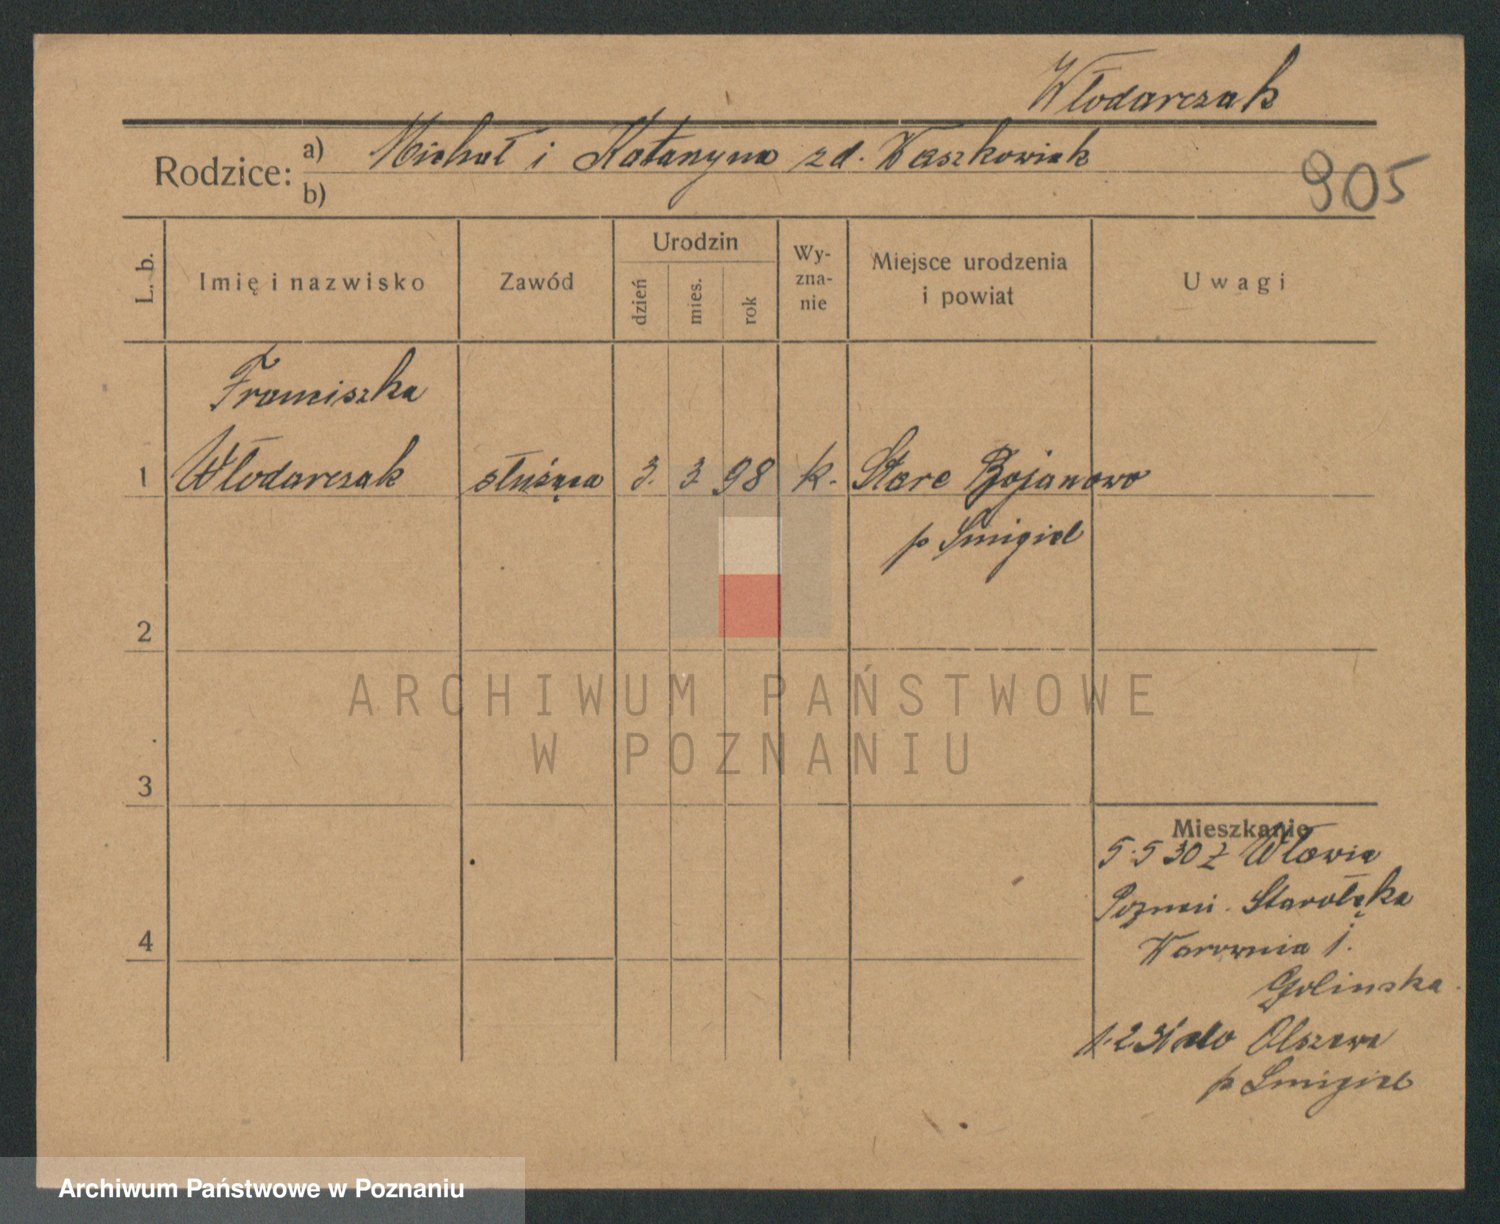 Włodarczak
Rodzice: a) Michał i Katarzyna zd. Waszkowiak
b)
905
L. b.
Imię i nazwisko
Zawód
Urodzin
dzień
mies.
rok
Wy-
zna-
nie
Miejsce urodzenia
i powiat
Uwagi
Franciszka
1 Włodarczak służąca 3. 3 98 k. Stare Bojanowo
p Śmigiel
2
3
4
Mieszkanie
5.5 30 z
Poznań. Starołęka
Warownia I.
Golinska.
1.2 31 do Olszewa
p Śmigiel
ARCHIWUM PAŃSTWOWE
W POZNANIU
Archiwum Państwowe w Poznaniu